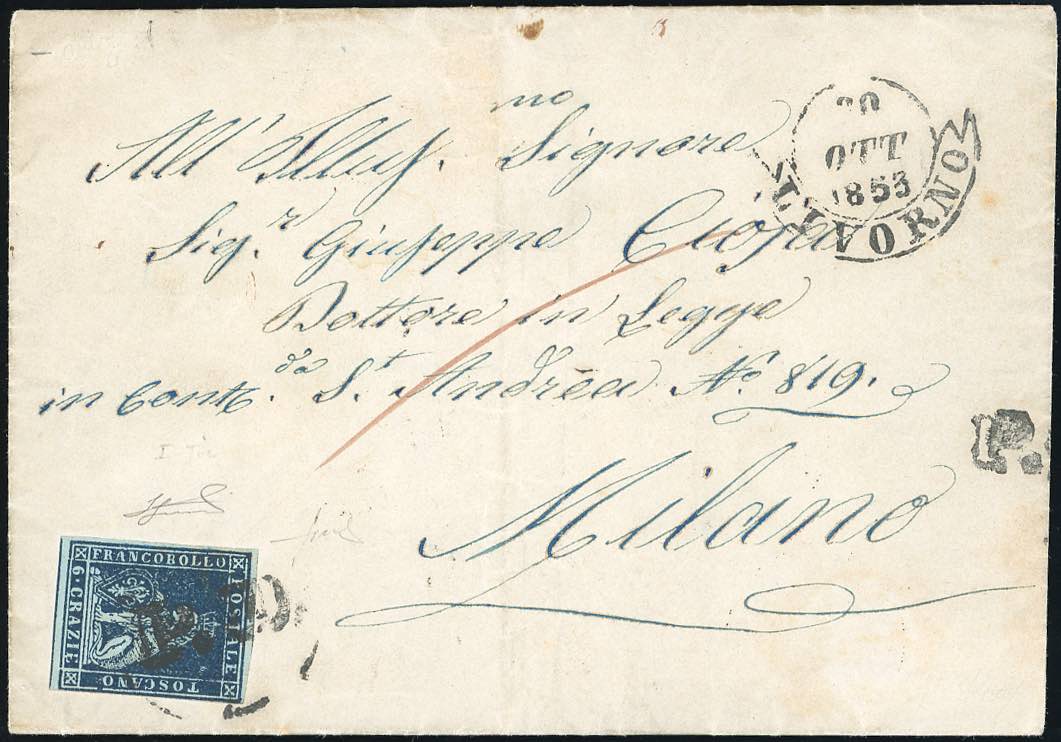 All' Illus.mo Signore
Sig.r Giuseppe Cioja
Dottore in Legge
in Cont.da S.t Andrea No. 819.
Milano
20
OTT
1853
LIVORNO
P.
FRANCOBOLLO
POSTALE
TOSCANO
6. CRAZIE
P. D